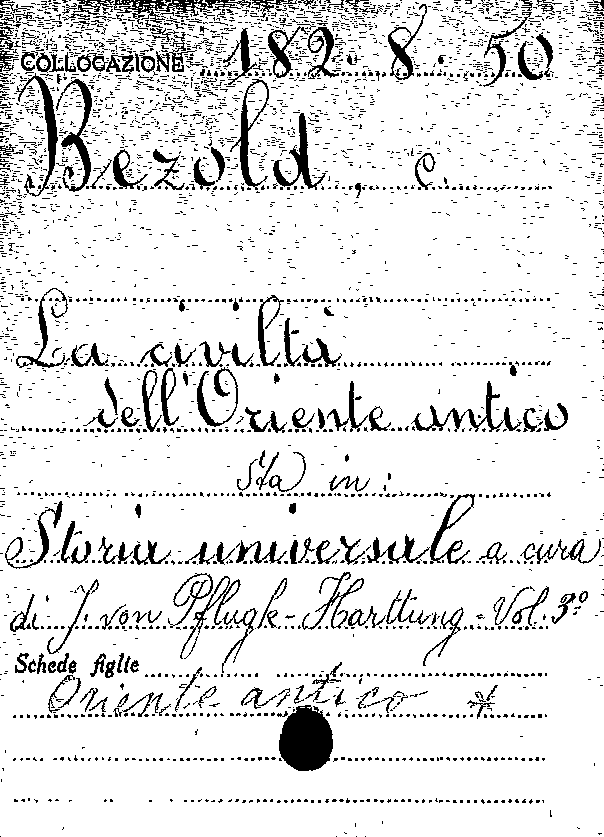 COLLOCAZIONE 182.8.50
Bezold, C.
La civiltà
dell'Oriente antico
sta in:
Storia universale a cura
di J. von Pflugk-Harttung - Vol. 3º
Schede figlie
Oriente antico *